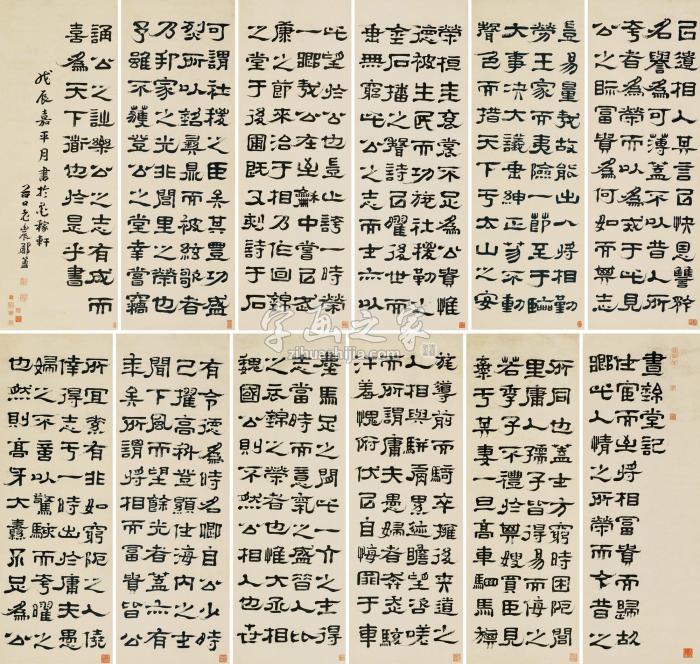 晝錦堂記
仕宦而至將相富貴而歸故
鄉此人情之所榮而今昔之
所同也蓋士方窮時困阨閭
里庸人孺子皆得易而侮之
若季子不禮於其嫂買臣見
棄于其妻一旦高車駟馬旗
旄導前而騎卒擁後夾道之
人相與駢肩累迹瞻望咨嗟
而所謂庸夫愚婦者奔走駭
汗羞愧俯伏以自悔罪于車
塵馬足之間此一介之士得
志當時而意氣之盛昔人比
之衣錦之榮者也惟大丞相
魏國公則不然公相人也世
有令德為時名卿自公少時
已擢高科登顯仕海內之士
聞下風而望餘光者蓋亦有
年矣所謂將相而富貴皆公
所宜素有非如窮阨之人僥
倖得志于一時出於庸夫愚
婦之不意以驚駭而夸曜之
也然則高牙大纛不足為公
榮桓圭袞裳不足為公貴惟
德被生民而功施社稷勒之
金石播之聲詩以曜後世而
垂無窮此公之志而士亦以
此望於公也豈止誇一時榮
一鄉哉公在至龢中嘗以武
康之節來治于相乃作晝錦
之堂于後圃既又刻詩于石
以遺相人其言以快恩讐矜
名譽為可薄蓋不以昔人所
夸者為榮而以為戒于此見
公之眎富貴為何如而其志
豈易量哉故能出入將相勤
勞王家而夷險一節至于臨
大事決大議垂紳正笏不動
聲色而措天下于泰山之安
可謂社稷之臣矣其豐功盛
烈所以銘彝鼎而被絃歌者
乃邦家之光非閭里之榮也
予雖不獲登公之堂幸嘗竊
誦公之詩樂公之志有成而
喜為天下道也於是乎書
戊辰嘉平月書於稼軒
谷口老農鄭簠
字画之家
zihuazhijia.com